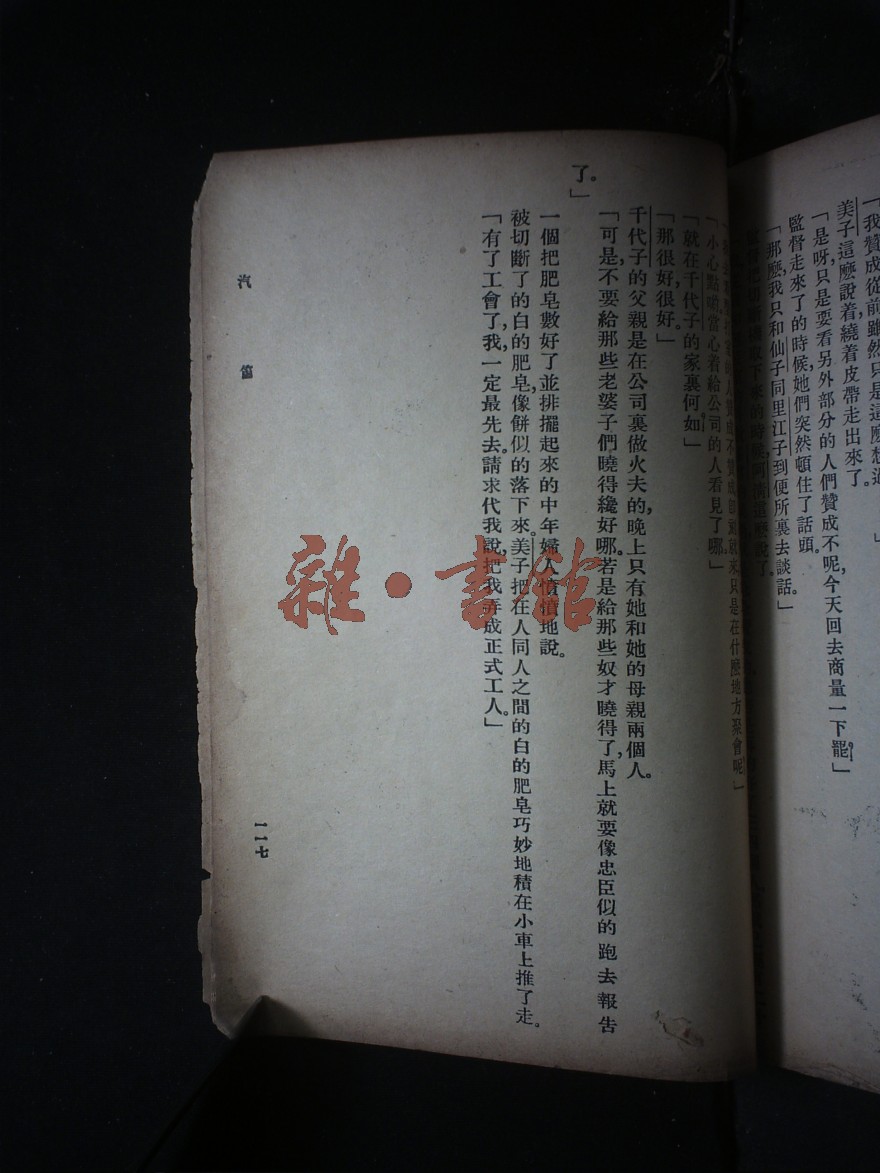 「我贊成從前雖然只是這麼想過。」
美子這麼說着繞着皮帶走出來了。
「是呀，只是要看另外部分的人們贊成不呢，今天回去商量一下罷。」
監督走來了的時候她們突然頓住了話頭。
「那麼，我只和仙子同里江子到便所裏去談話。」
下來的時候，
說了。
只是在什麼地方聚會呢」
「小心點喲，當心着給公司的人看見了哪。」
「就在千代子的家裏何如」
「那很好，很好。」
千代子的父親是在公司裏做火夫的，晚上只有她和她的母親兩個人。
「可是，不要給那些老婆子們曉得纔好哪。若是給那些奴才曉得了，馬上就要像忠臣似的跑去報告
了。」
一個把肥皂數好了並排擺起來的中年婦人憤憤地說。
被切斷了的白的肥皂像餅似的落下來。美子把在人同人之間的白的肥皂巧妙地積在小車上推了走。
「有了工會了，我一定最先去。請求代我說，把我弄成正式工人。」
汽笛
一一七
雜·書館